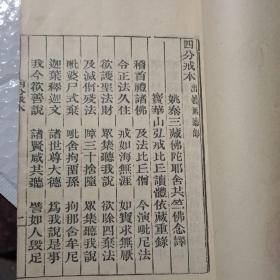 四分戒本
姚秦三藏佛陀耶舍共竺佛念譯
寶華山弘戒比丘讀體依藏重錄
稽首禮諸佛 及法比丘僧 今演毗尼法
令正法久住 戒如海無涯 如寶求無厭
欲護聖法財 眾集聽我說 欲除四棄法
及滅僧殘法 障三十捨墮 眾集聽我說
毗婆尸式棄 毗舍拘留孫 拘那含牟尼
迦葉釋迦文 諸世尊大德 為我說是事
我今欲善說 諸賢咸共聽 譬如人毀足
四分戒本
一